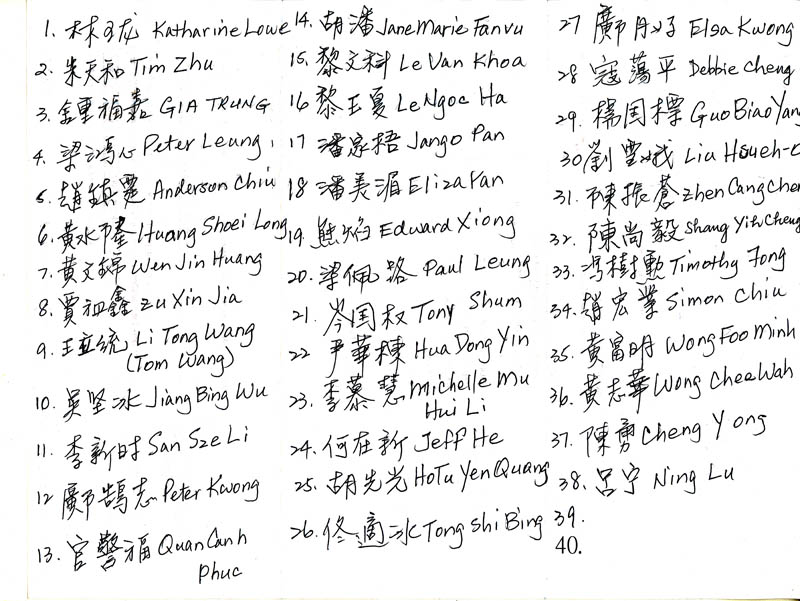 1. 林玉龙 Katharine Lowe
2. 朱天和 Tim Zhu
3. 鍾重福嘉 GIA TRUNG
4. 梁鴻心 Peter Leung,
5. 趙鎮寰 Anderson Chiu
6. 黃水隆 Huang Shoei Long
7. 黃文錦 Wen Jin Huang
8. 賈祖鑫 Zu Xin Jia
9. 王立統 Li Tong Wang
(Tom Wang)
10. 吳坚冰 Jiang Bing Wu
11. 李新时 San Sze Li
12 鄺鵠志 Peter Kwong
13. 官警福 Quan Canh
Phuc
14. 胡潘 Jane Marie Fanvu
15. 黎文科 Le Van Khoa
16 黎玉夏 Le Ngoc Ha
17 潘家梧 Jango Pan
18 潘美湄 Eliza Pan
19. 熊焰 Edward Xiong
20. 梁佩路 Paul Leung
21. 岑国权 Tony Shum
22 尹華棟 Hua Dong Yin
23. 李慕慧 Michelle Mu
Hui Li
24. 何在新 Jeff He
25. 胡先光 Ho Tu Yen Quang
26. 佟適冰 Tong Shi Bing
27 鄺月好 Elsa Kwong
28 寇蕩平 Debbie Cheng
29. 楊国標 Guo Biao Yang
30 劉雪娥 Liu Hsueh-
31. 陳振蒼 Zhen Cang Chen
32. 陳尚毅 Shang Yih Cheng
33. 馮樹勳 Timothy Fong
34. 趙宏業 Simon Chiu
35. 黃富明 Wong Foo Minh
36. 黃志華 Wong Chee Wah
37. 陳勇 Cheng Yong
38. 呂宁 Ning Lu
39.
40.